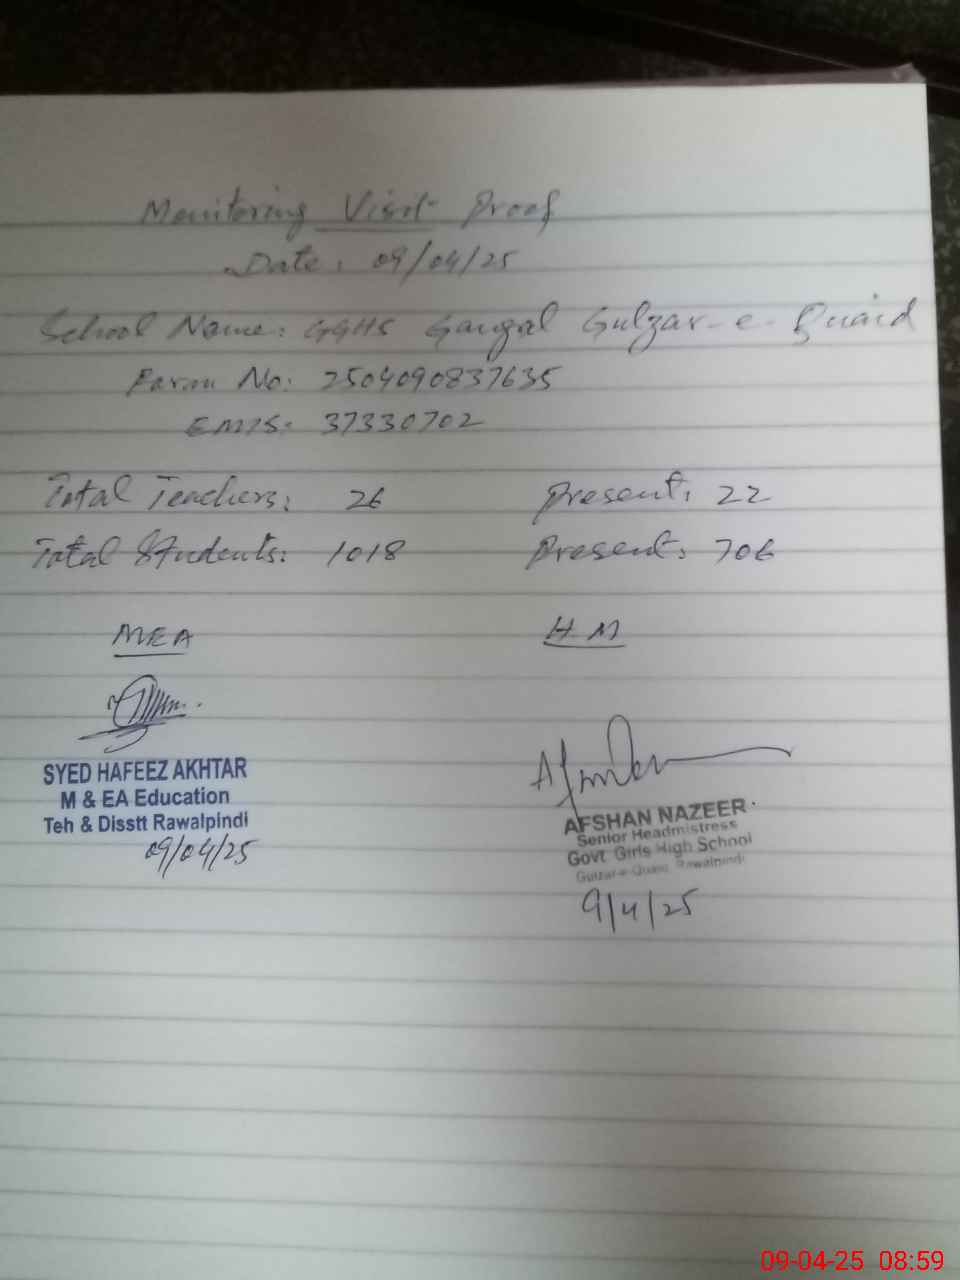 Monitoring Visit Proof
Date: 09/04/25
School Name: GGHS Gangal Gulzar-e-Quaid
Param No: 2504090837635
EMIS: 37330702
Total Teachers: 26 Present: 22
Total Students: 1018 Present: 706
MEA H.M
SYED HAFEEZ AKHTAR
M & EA Education
Teh & Disstt Rawalpindi
09/04/25
AFSHAN NAZEER
Senior Headmistress
Govt Girls High School
Gulzar-e-Quaid Rawalpindi
9/4/25
09-04-25 08:59